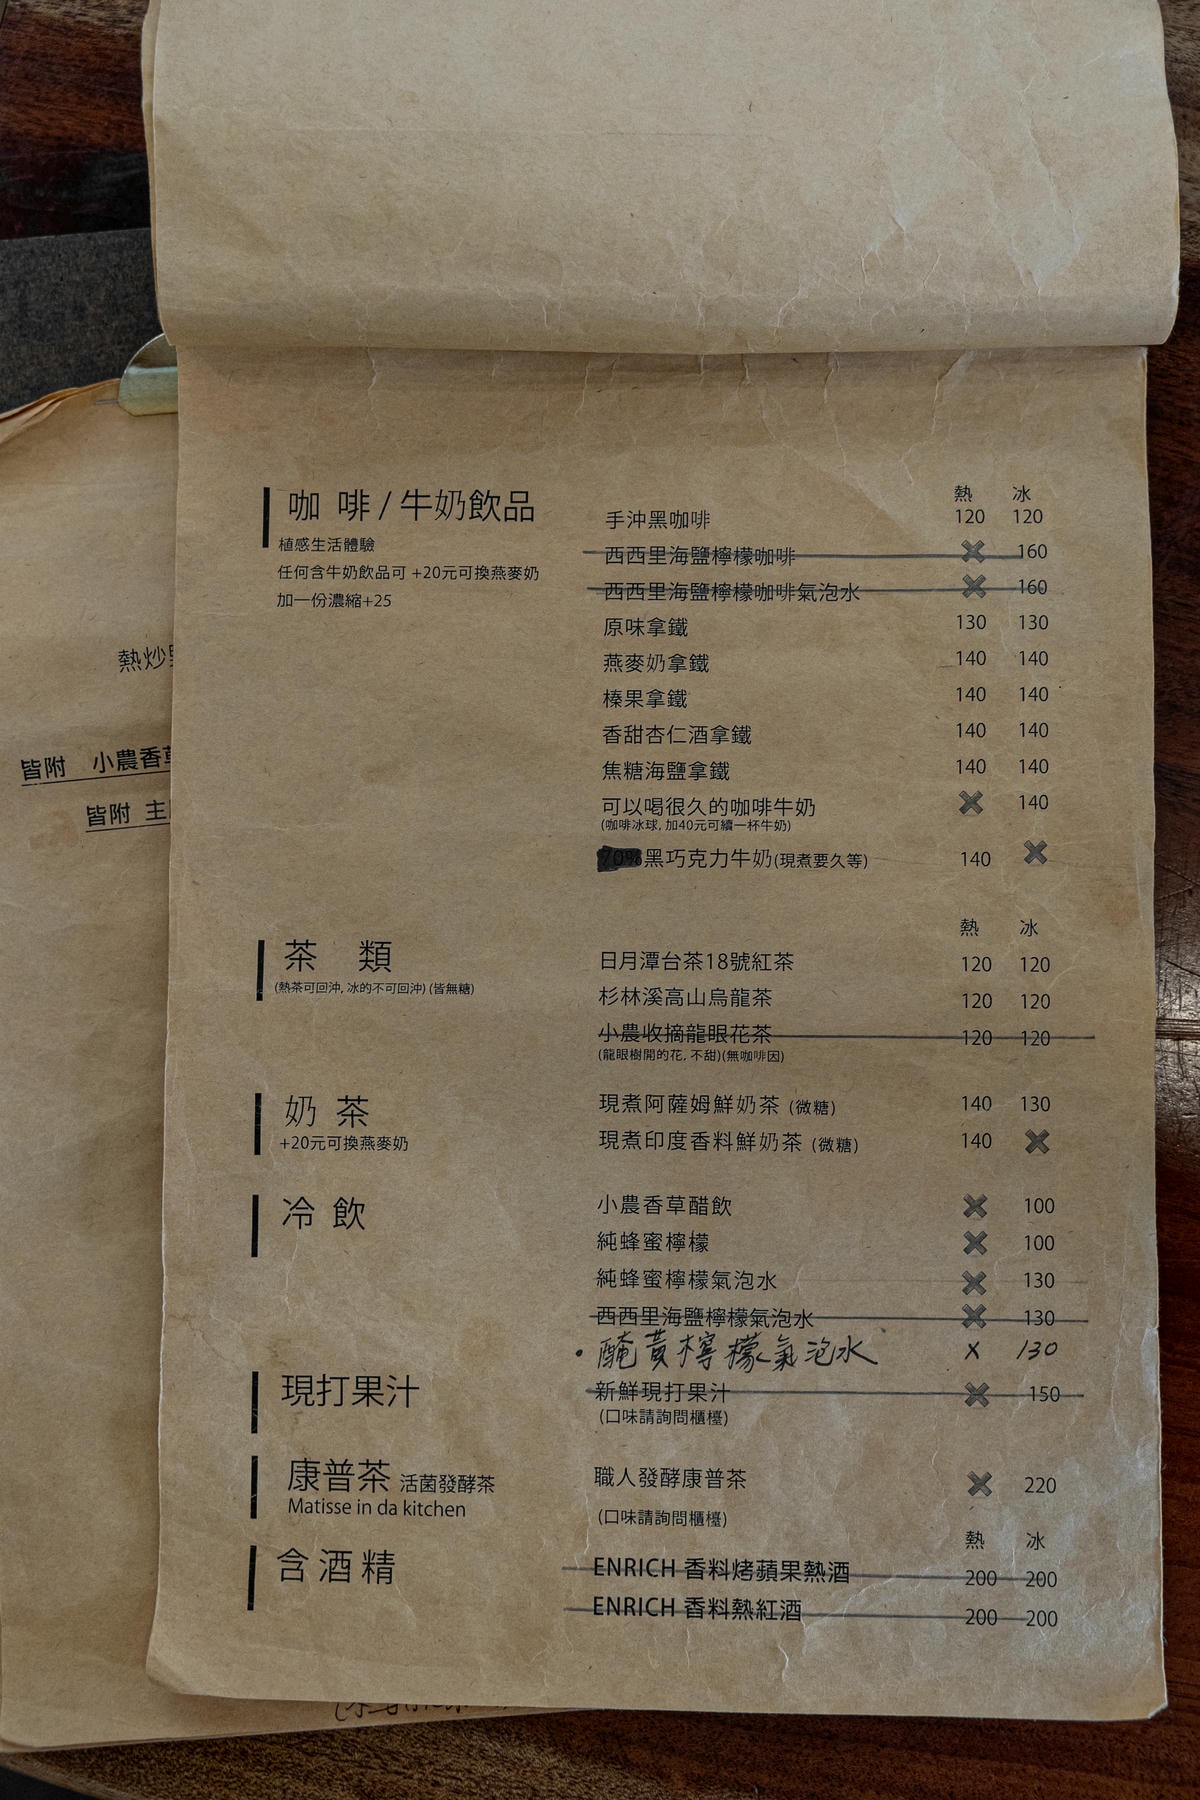 熱炒
皆附 小農香草
皆附 主
咖啡/牛奶飲品
植感生活體驗
任何含牛奶飲品可 +20元可換燕麥奶
加一份濃縮+25
熱 冰
手沖黑咖啡 120 120
西西里海鹽檸檬咖啡 ✖ 160
西西里海鹽檸檬咖啡氣泡水 ✖ 160
原味拿鐵 130 130
燕麥奶拿鐵 140 140
榛果拿鐵 140 140
香甜杏仁酒拿鐵 140 140
焦糖海鹽拿鐵 140 140
可以喝很久的咖啡牛奶 ✖ 140
(咖啡冰球, 加40元可續一杯牛奶)
70%黑巧克力牛奶(現煮要久等) 140 ✖
茶 類
(熱茶可回沖, 冰的不可回沖) (皆無糖)
熱 冰
日月潭台茶18號紅茶 120 120
杉林溪高山烏龍茶 120 120
小農收摘龍眼花茶 120 120
(龍眼樹開的花, 不甜)(無咖啡因)
奶 茶
+20元可換燕麥奶
現煮阿薩姆鮮奶茶 (微糖) 140 130
現煮印度香料鮮奶茶 (微糖) 140 ✖
冷 飲
小農香草醋飲 ✖ 100
純蜂蜜檸檬 ✖ 100
純蜂蜜檸檬氣泡水 ✖ 130
西西里海鹽檸檬氣泡水 ✖ 130
・醃黃檸檬氣泡水 x 130
現打果汁
新鮮現打果汁 ✖ 150
(口味請詢問櫃檯)
康普茶 活菌發酵茶
Matisse in da kitchen
職人發酵康普茶 ✖ 220
(口味請詢問櫃檯)
含酒精
熱 冰
ENRICH 香料烤蘋果熱酒 200 200
ENRICH 香料熱紅酒 200 200